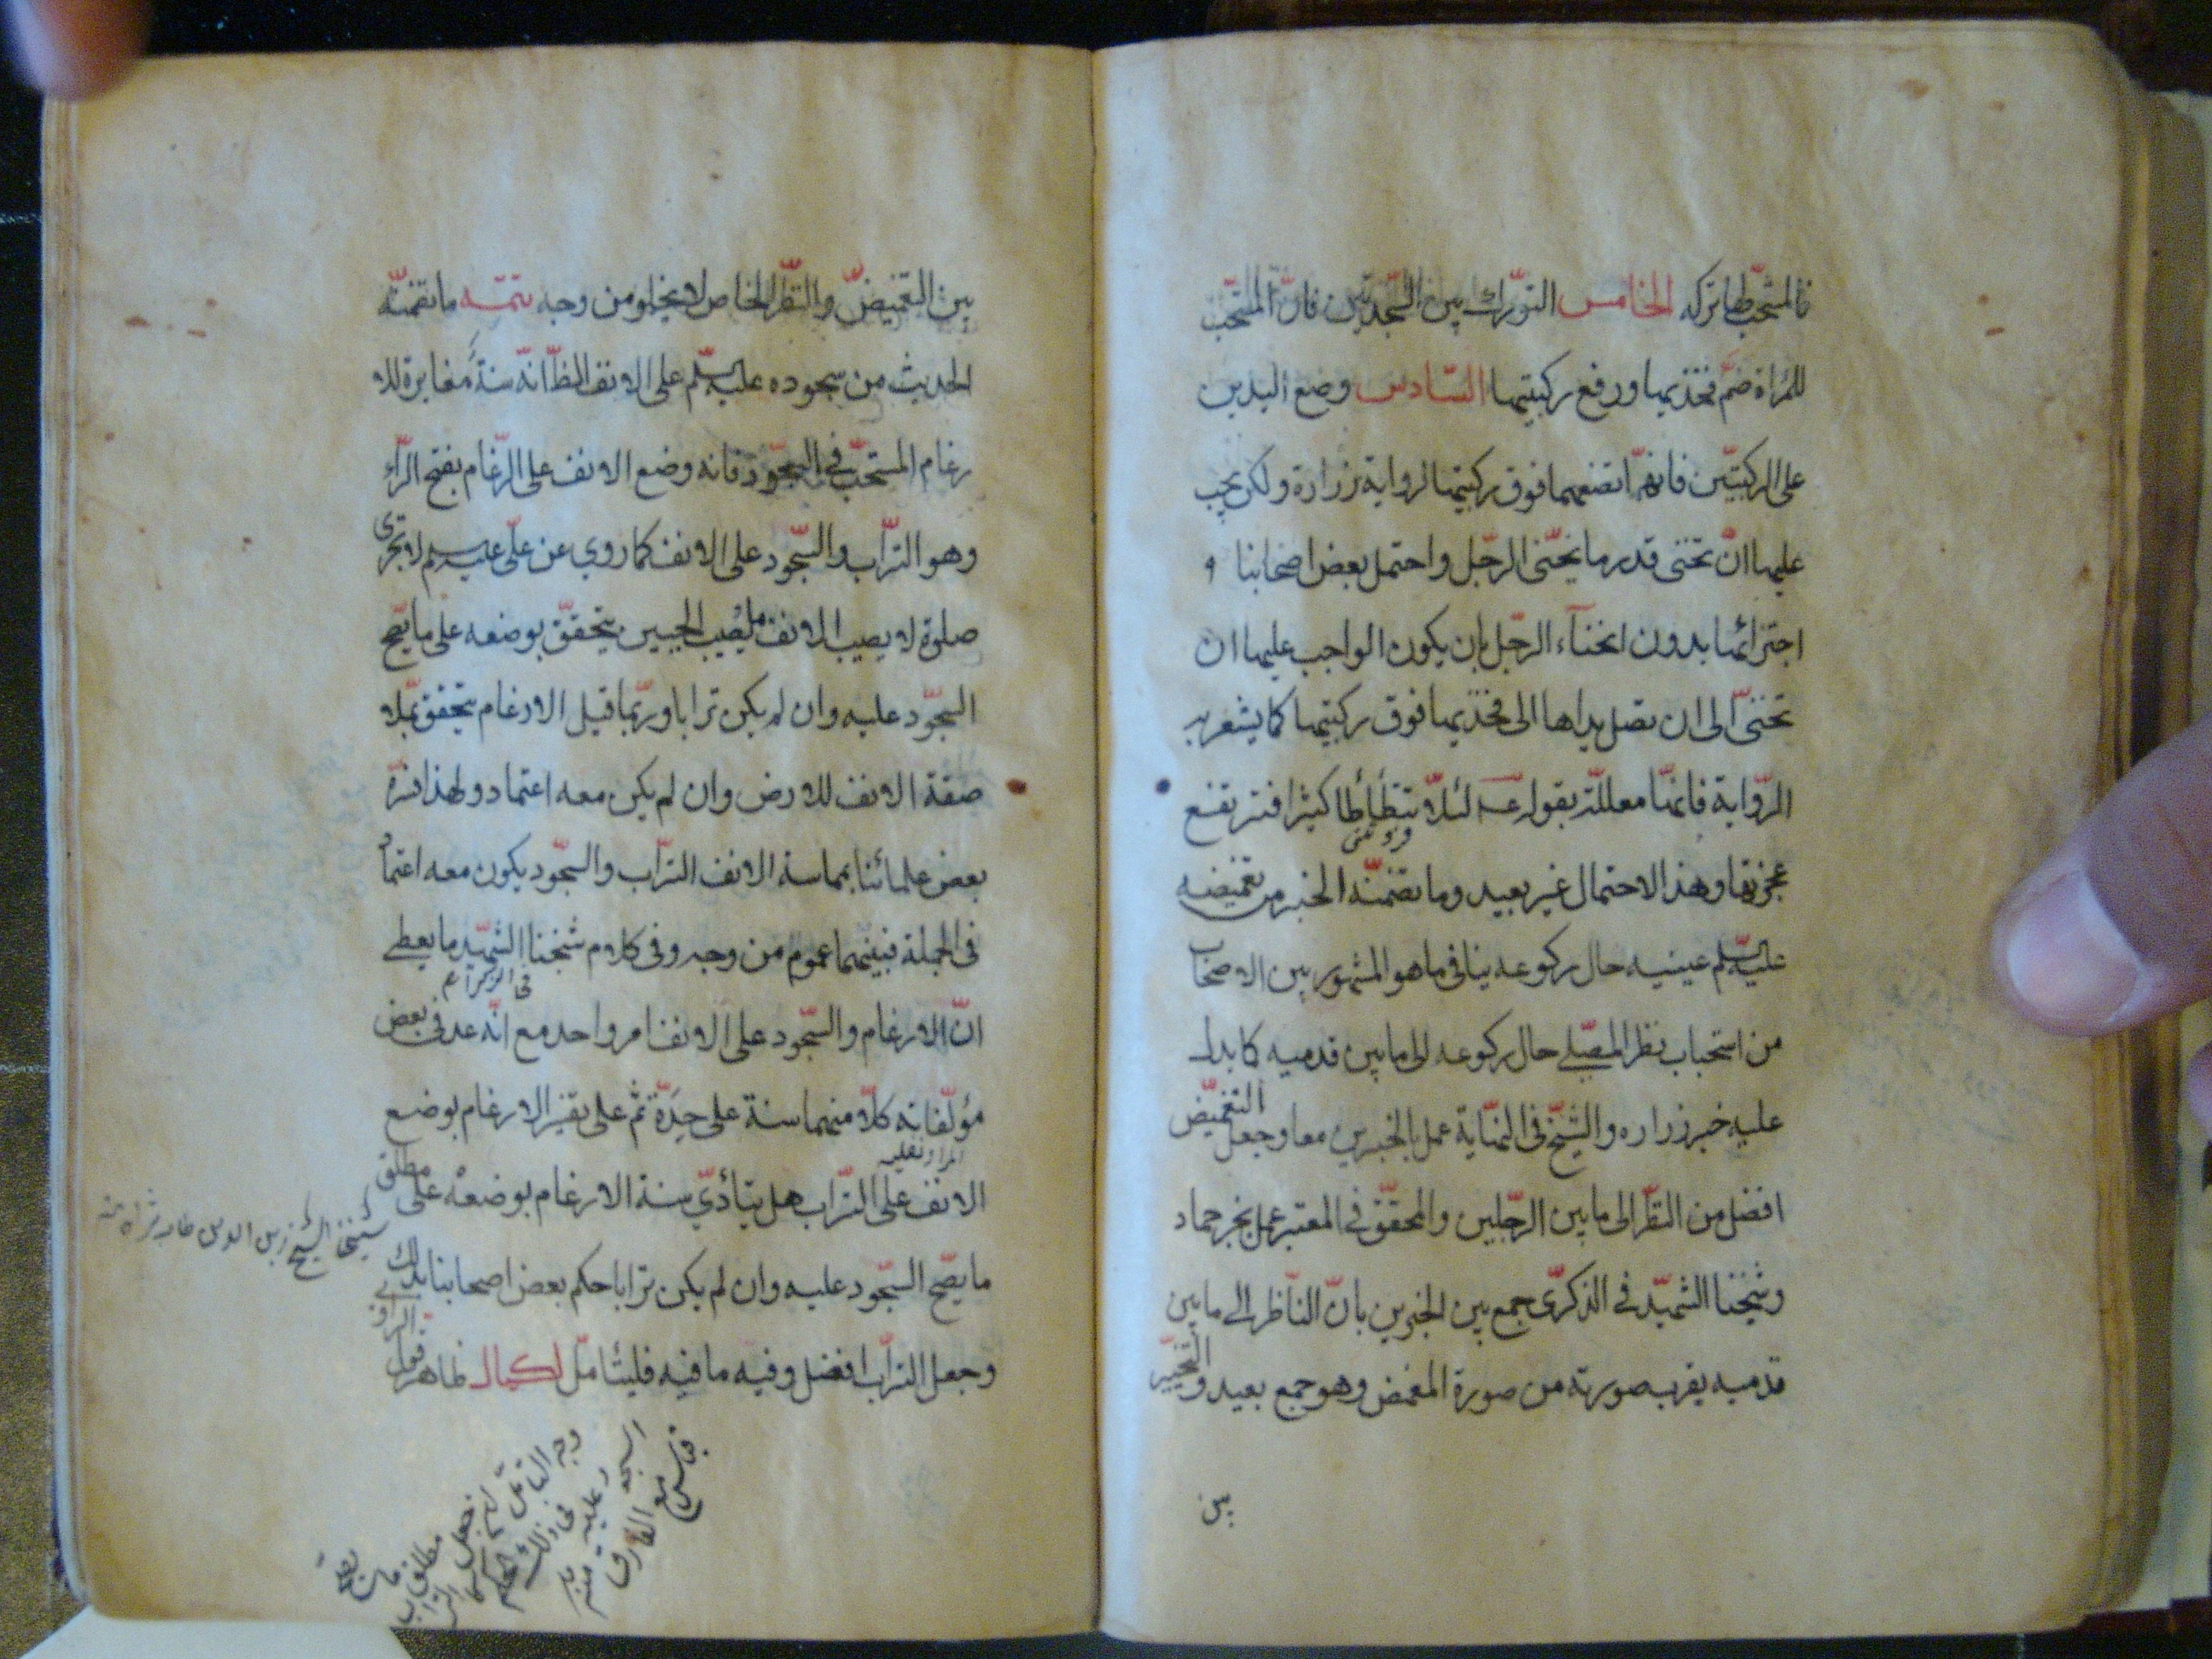 فالمستحب لها تركه الخامس التورك بين السجدتين فان المستحب
للمرأة ضم فخذيها ورفع ركبتيها السادس وضع اليدين
على الركبتين فانها تضعهما فوق ركبتيها لرواية زرارة ولكن يجب
عليها ان تنحنى قدر ما ينحنى الرجل واحتمل بعض اصحابنا
اجتزائها بدون انحناء الرجل بان يكون الواجب عليها ان
تنحنى الى ان تصل يداها الى فخذيها فوق ركبتيها كما يشعر به
الرواية فانها معللة بقوله ع لئلا تتطأطأ كثيرا فترتفع
عجيزتها وهذا الاحتمال غير بعيد وما تضمنه الخبر من تغميضه
عليه السلم عينيه حال ركوعه ينافى ما هو المشهور بين الاصحاب
من استحباب نظر المصلى حال ركوعه الى ما بين قدميه كما يدل
عليه خبر زراره والشيخ فى النهاية عمل بالخبرين معا وجعل التغميض
افضل من النظر الى ما بين الرجلين والمحقق فى المعتبر عمل بخبر حماد
وشيخنا الشهيد فى الذكرى جمع بين الخبرين بان الناظر الى ما بين
قدميه يقرب صورته من صورة المغمض وهو جمع بعيد والتخيير
بين
بين التغميض والنظر الخاص لا يخلو من وجه تتمه ما تضمنه
الحديث من سجوده عليه السلم على الانف الظ انه سنة مغايرة للا
رغام المستحب فى السجود فانه وضع الانف على الرغام بفتح الراء
وهو التراب والسجود على الانف كما روي عن على عليه السلم لا تجزى
صلوة لا يصيب الانف ما يصيب الجبين يتحقق بوضعه على ما يصح
السجود عليه وان لم يكن ترابا وربما قيل الارغام يتحقق بملا
صقة الانف للارض وان لم يكن معه اعتماد ولهذا فسره
بعض علمائنا بمماسة الانف التراب والسجود يكون معه اعتماد
فى الجملة فبينهما عموم من وجه وفى كلام شيخنا الشهيد ما يعطى
ان الارغام والسجود على الانف امر واحد مع انه عد فى بعض
مؤلفاته كلا منهما سنة على حدة ثم على تفسير الارغام بوضع
الانف على التراب هل يتأدى سنة الارغام بوضعه على مطلق
شيخنا الشيخ زين الدين طاب ثراه منه
ما يصح السجود عليه وان لم يكن ترابا حكم بعض اصحابنا بذلك
وجعل التراب افضل وفيه ما فيه فليتأمل اكمال ظاهر قول الراوي
وجه التأمل